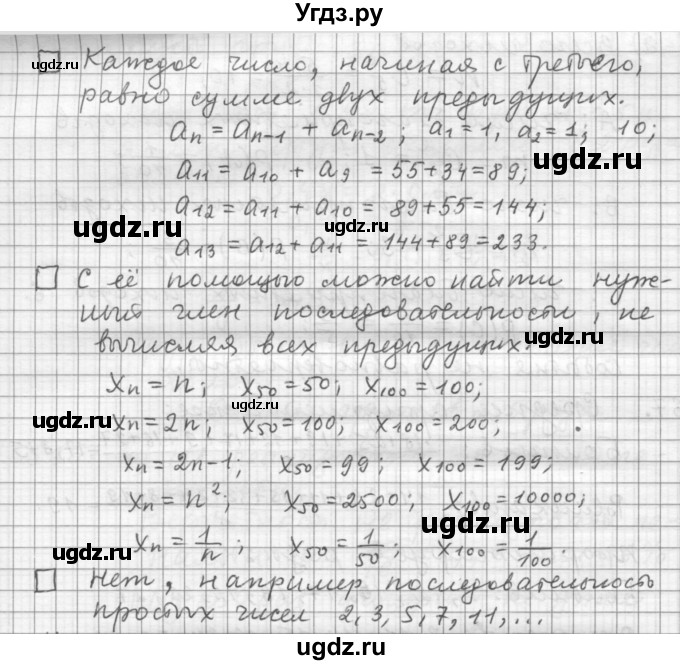 Угдз.ру
□ Каждое число, начиная с третьего,
ugdz.ru
равно сумме двух предыдущих.
aₙ = aₙ₋₁ + aₙ₋₂; a₁ = 1, a₂ = 1; 10;
ugdz.ru
a₁₁ = a₁₀ + a₉ = 55 + 34 = 89;
ugdz.ru
a₁₂ = a₁₁ + a₁₀ = 89 + 55 = 144;
ugdz.ru
a₁₃ = a₁₂ + a₁₁ = 144 + 89 = 233.
□ С её помощью можно найти нуж-
ный член последовательности, не
ugdz.ru
вычисляя всех предыдущих.
ugdz.ru
xₙ = n; x₅₀ = 50; x₁₀₀ = 100;
ugdz.ru
ugdz.ru
xₙ = 2n; x₅₀ = 100; x₁₀₀ = 200;
xₙ = 2n-1; x₅₀ = 99; x₁₀₀ = 199;
xₙ = n²; x₅₀ = 2500; x₁₀₀ = 10000;
ugdz.ru
ugdz.ru
xₙ = 1/n; x₅₀ = 1/50; x₁₀₀ = 1/100.
ugdz.ru
□ Нет, например последовательность
простых чисел 2, 3, 5, 7, 11, ...
ugdz.ru
ugdz.ru